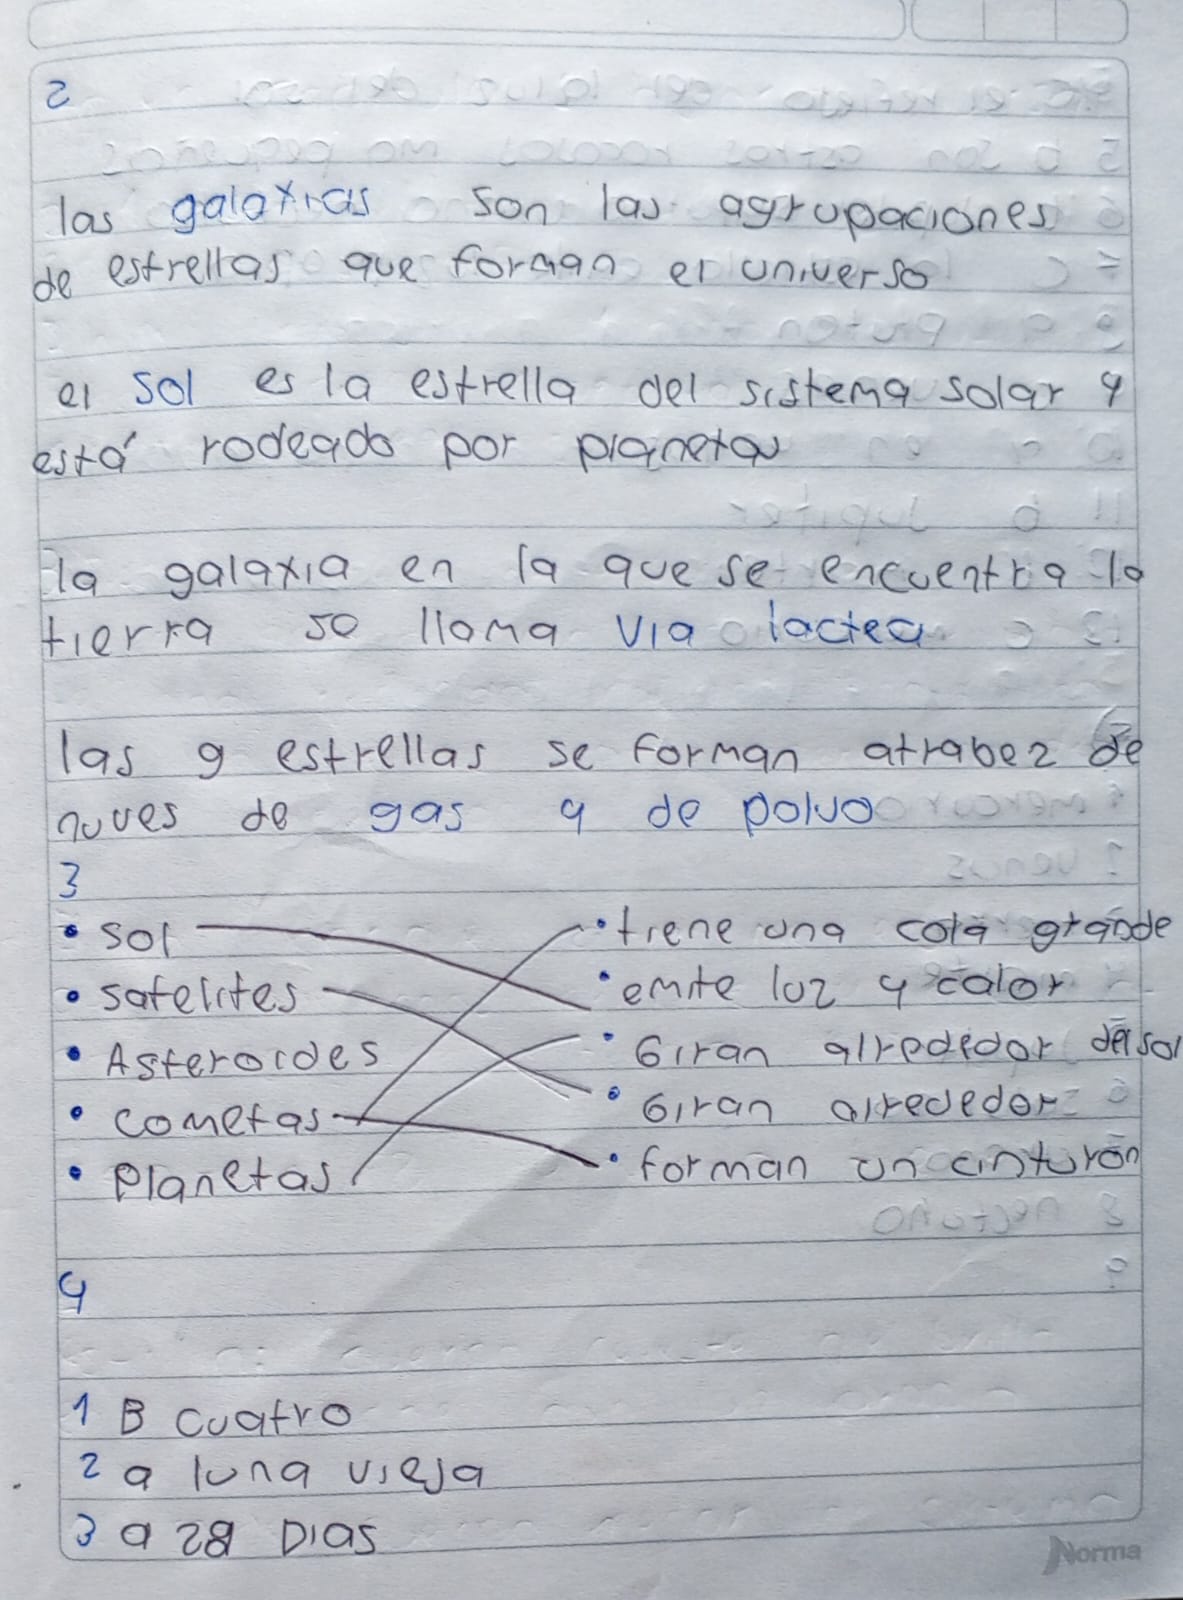 2
las galaxias son las agrupaciones
de estrellas que forman el universo
el sol es la estrella del sistema solar y
está rodeado por planetas
la galaxia en la que se encuentra la
tierra se llama via lactea
las g estrellas se forman atrabez de
nuves de gas y de polvo
3
• sol • tiene una cola grande
• satelites • emite luz y calor
• Asteroides • Giran alrededor del sol
• cometas • Giran alrededor
• Planetas • forman un cinturón
4
1 B cuatro
2 a luna vieja
3 a 28 DIAS
Norma